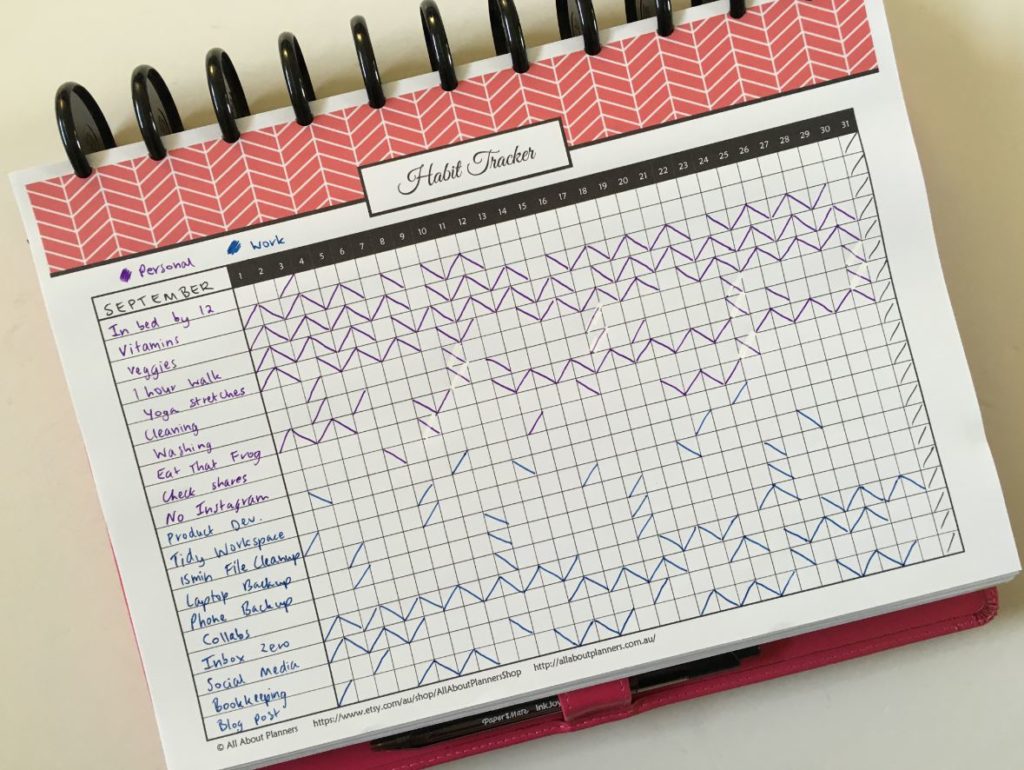 Habit Tracker
Personal Work
SEPTEMBER 1 2 3 4 5 6 7 8 9 10 11 12 13 14 15 16 17 18 19 20 21 22 23 24 25 26 27 28 29 30 31
In bed by 12
Vitamins
Veggies
1 hour walk
Yoga stretches
Cleaning
Washing
Eat That Frog
Check shares
No Instagram
Product Dev.
Tidy Workspace
15min File Cleanup
Laptop Backup
Phone Backup
Collabs
Inbox Zero
Social Media
Bookkeeping
Blog Post
© All About Planners https://www.etsy.com/au/shop/AllAboutPlannersShop http://allaboutplanners.com.au/
PAPER MATE InkJoy